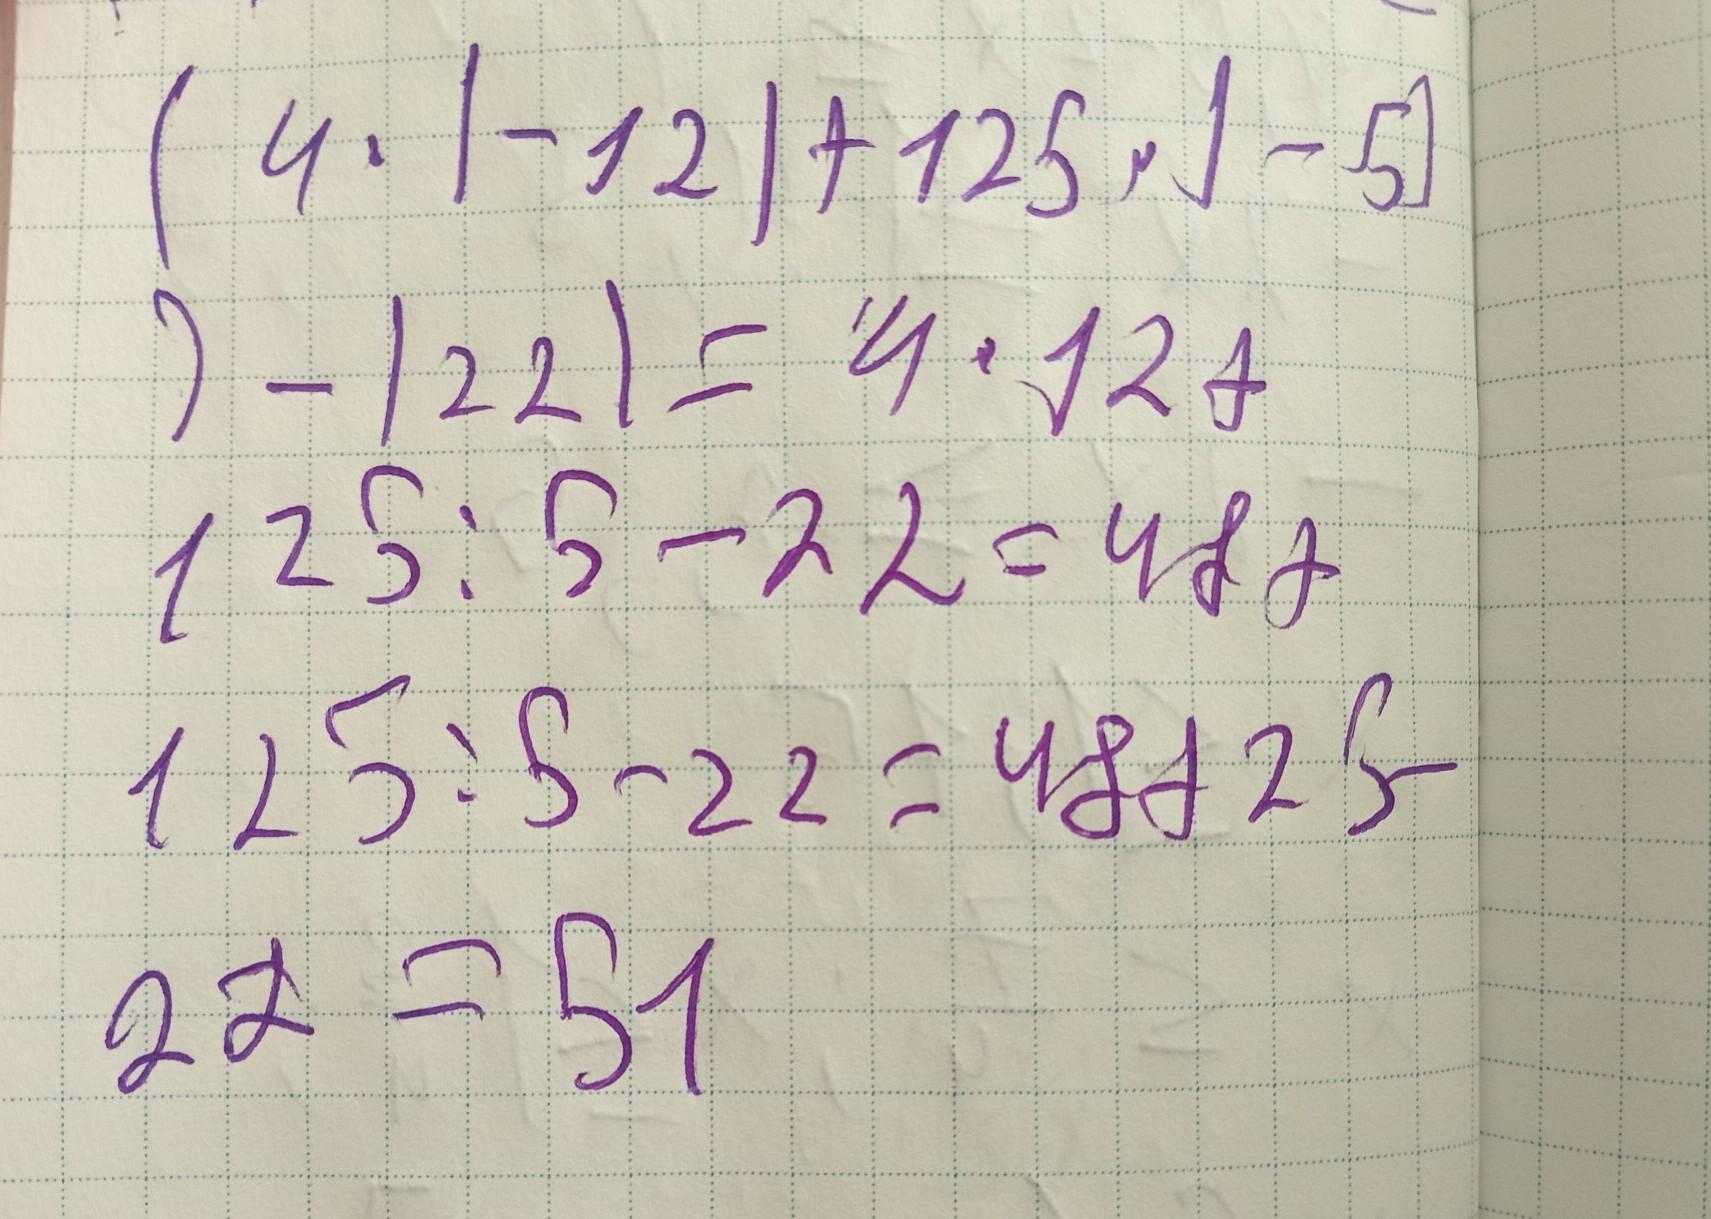 ( 4 · |-12| + 125 · |-5|
) - |22| = 4 · 12 +
125 : 5 - 22 = 48 +
125 : 5 - 22 = 48 + 25 -
22 = 51